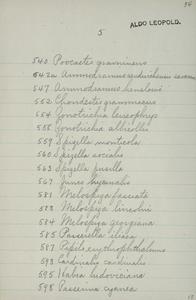 54
ALDO LEOPOLD.
5
540 Poocaetes gramineus
542a Ammodramus sandwichensis savanna
547 Ammodramus henslowi
552 Chondestes grammacus
554 Zonotrichia leucophrys
558 Zonotrichia albicollis
559 Spizella monticola
560 Spizella socialis
563 Spizella pusilla
567 Junco hyemalis
581 Melospiza fasciata
583 Melospiza lincolni
584 Melospiza georgiana
585 Passerella iliaca
587 Pipilo erythrophthalmus
593 Cardinalis cardinalis
595 Habia ludoviciana
598 Passerina cyanea